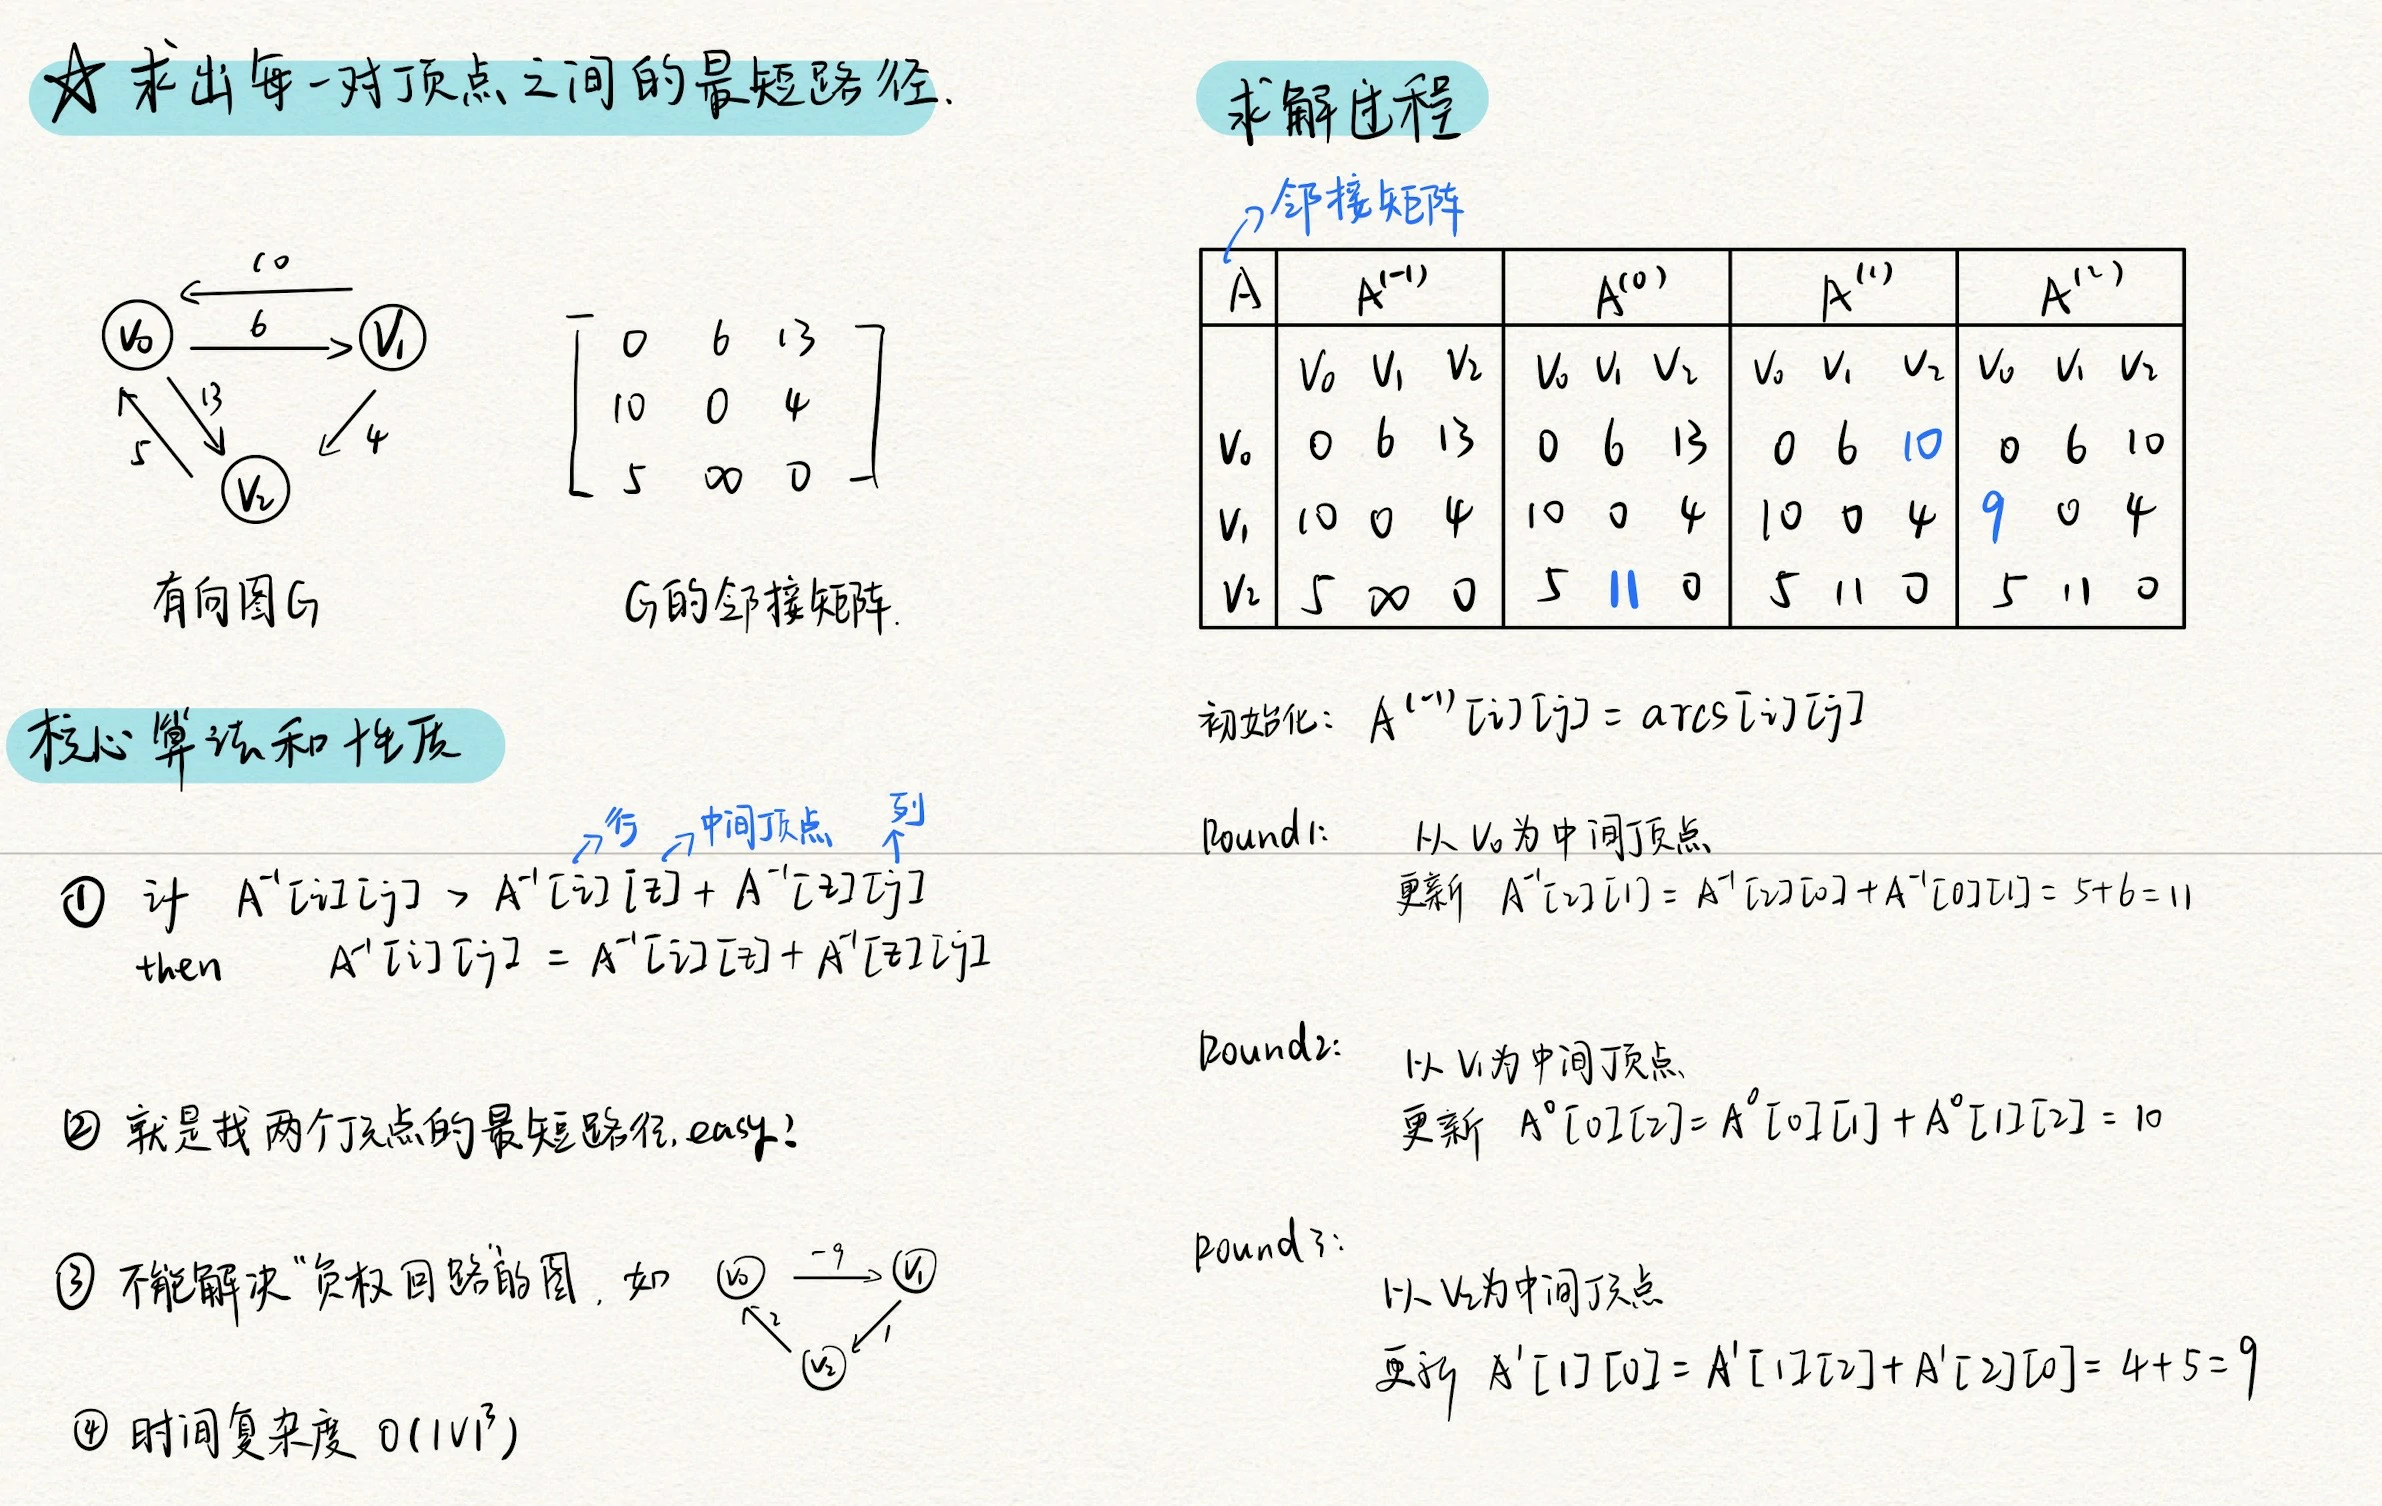 ☆ 求出每一对顶点之间的最短路径.
10
V₀ 6 V₁
13
5 4
V₂
0 6 13
10 0 4
5 ∞ 0
有向图G
G的邻接矩阵.
核心算法和性质
行 中间顶点 列
① if A⁻¹[i][j] > A⁻¹[i][z] + A⁻¹[z][j]
then A⁻¹[i][j] = A⁻¹[i][z] + A⁻¹[z][j]
② 就是找两个顶点的最短路径, easy!
③ 不能解决"负权回路"的图, 如
V₀ -9 V₁
2 1
V₂
④ 时间复杂度 O(|V|³)
求解过程
邻接矩阵
A A⁽⁻¹⁾ A⁽⁰⁾ A⁽¹⁾ A⁽²⁾
V₀ V₁ V₂ V₀ V₁ V₂ V₀ V₁ V₂ V₀ V₁ V₂
V₀ 0 6 13 0 6 13 0 6 10 0 6 10
V₁ 10 0 4 10 0 4 10 0 4 9 0 4
V₂ 5 ∞ 0 5 11 0 5 11 0 5 11 0
初始化: A⁽⁻¹⁾[i][j] = arcs[i][j]
Round1: 以V₀为中间顶点
更新 A⁻¹[2][1] = A⁻¹[2][0] + A⁻¹[0][1] = 5+6=11
Round2: 以V₁为中间顶点
更新 A⁰[0][2] = A⁰[0][1] + A⁰[1][2] = 10
Round3:
以V₂为中间顶点
更新 A¹[1][0] = A¹[1][2] + A¹[2][0] = 4+5=9